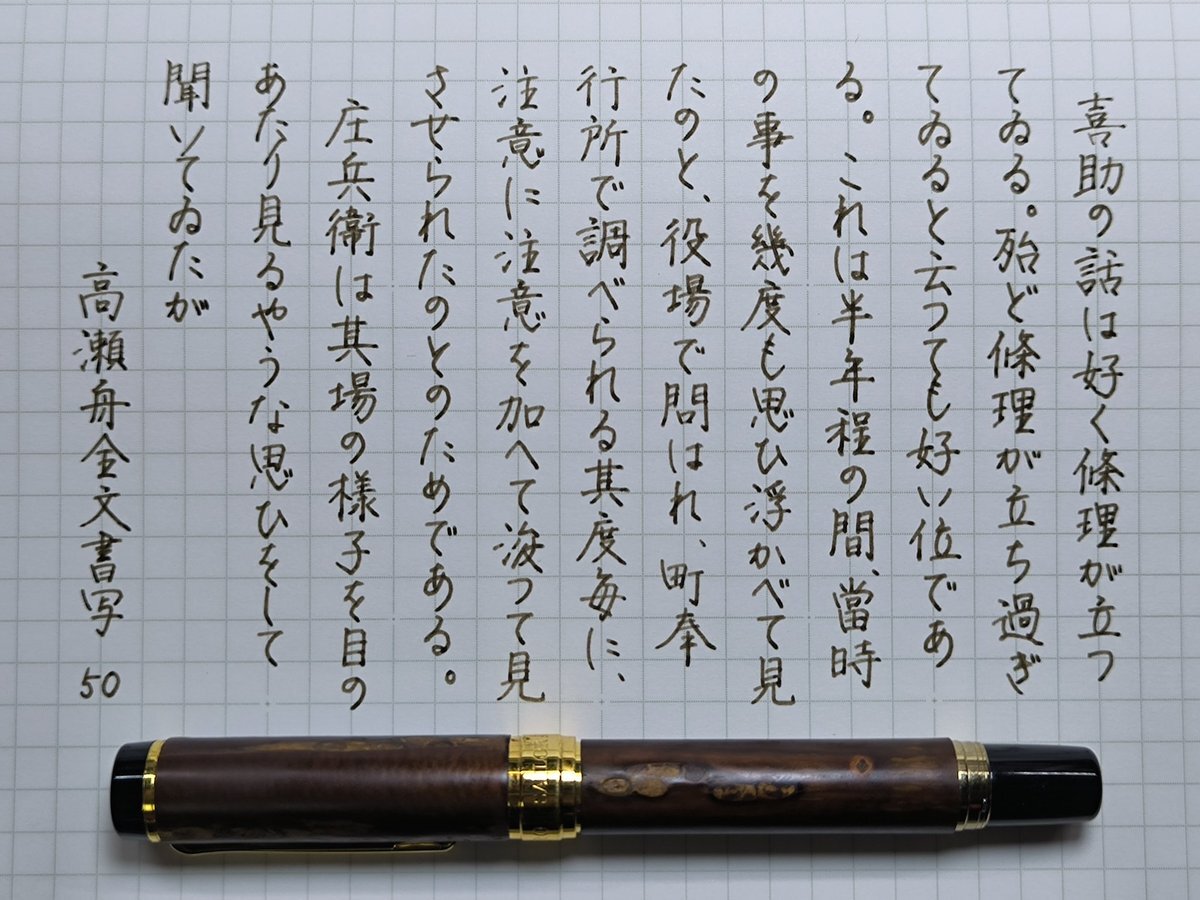 喜助の話は好く條理が立つ
てゐる。殆ど條理が立ち過ぎ
てゐると云つても好い位であ
る。これは半年程の間、當時
の事を幾度も思ひ浮かべて見
たのと、役場で問はれ、町奉
行所で調べられる其度毎に、
注意に注意を加へて浚つて見
させられたのとのためである。
庄兵衛は其場の様子を目の
あたり見るやうな思ひをして
聞いてゐたが
高瀬舟全文書写 50